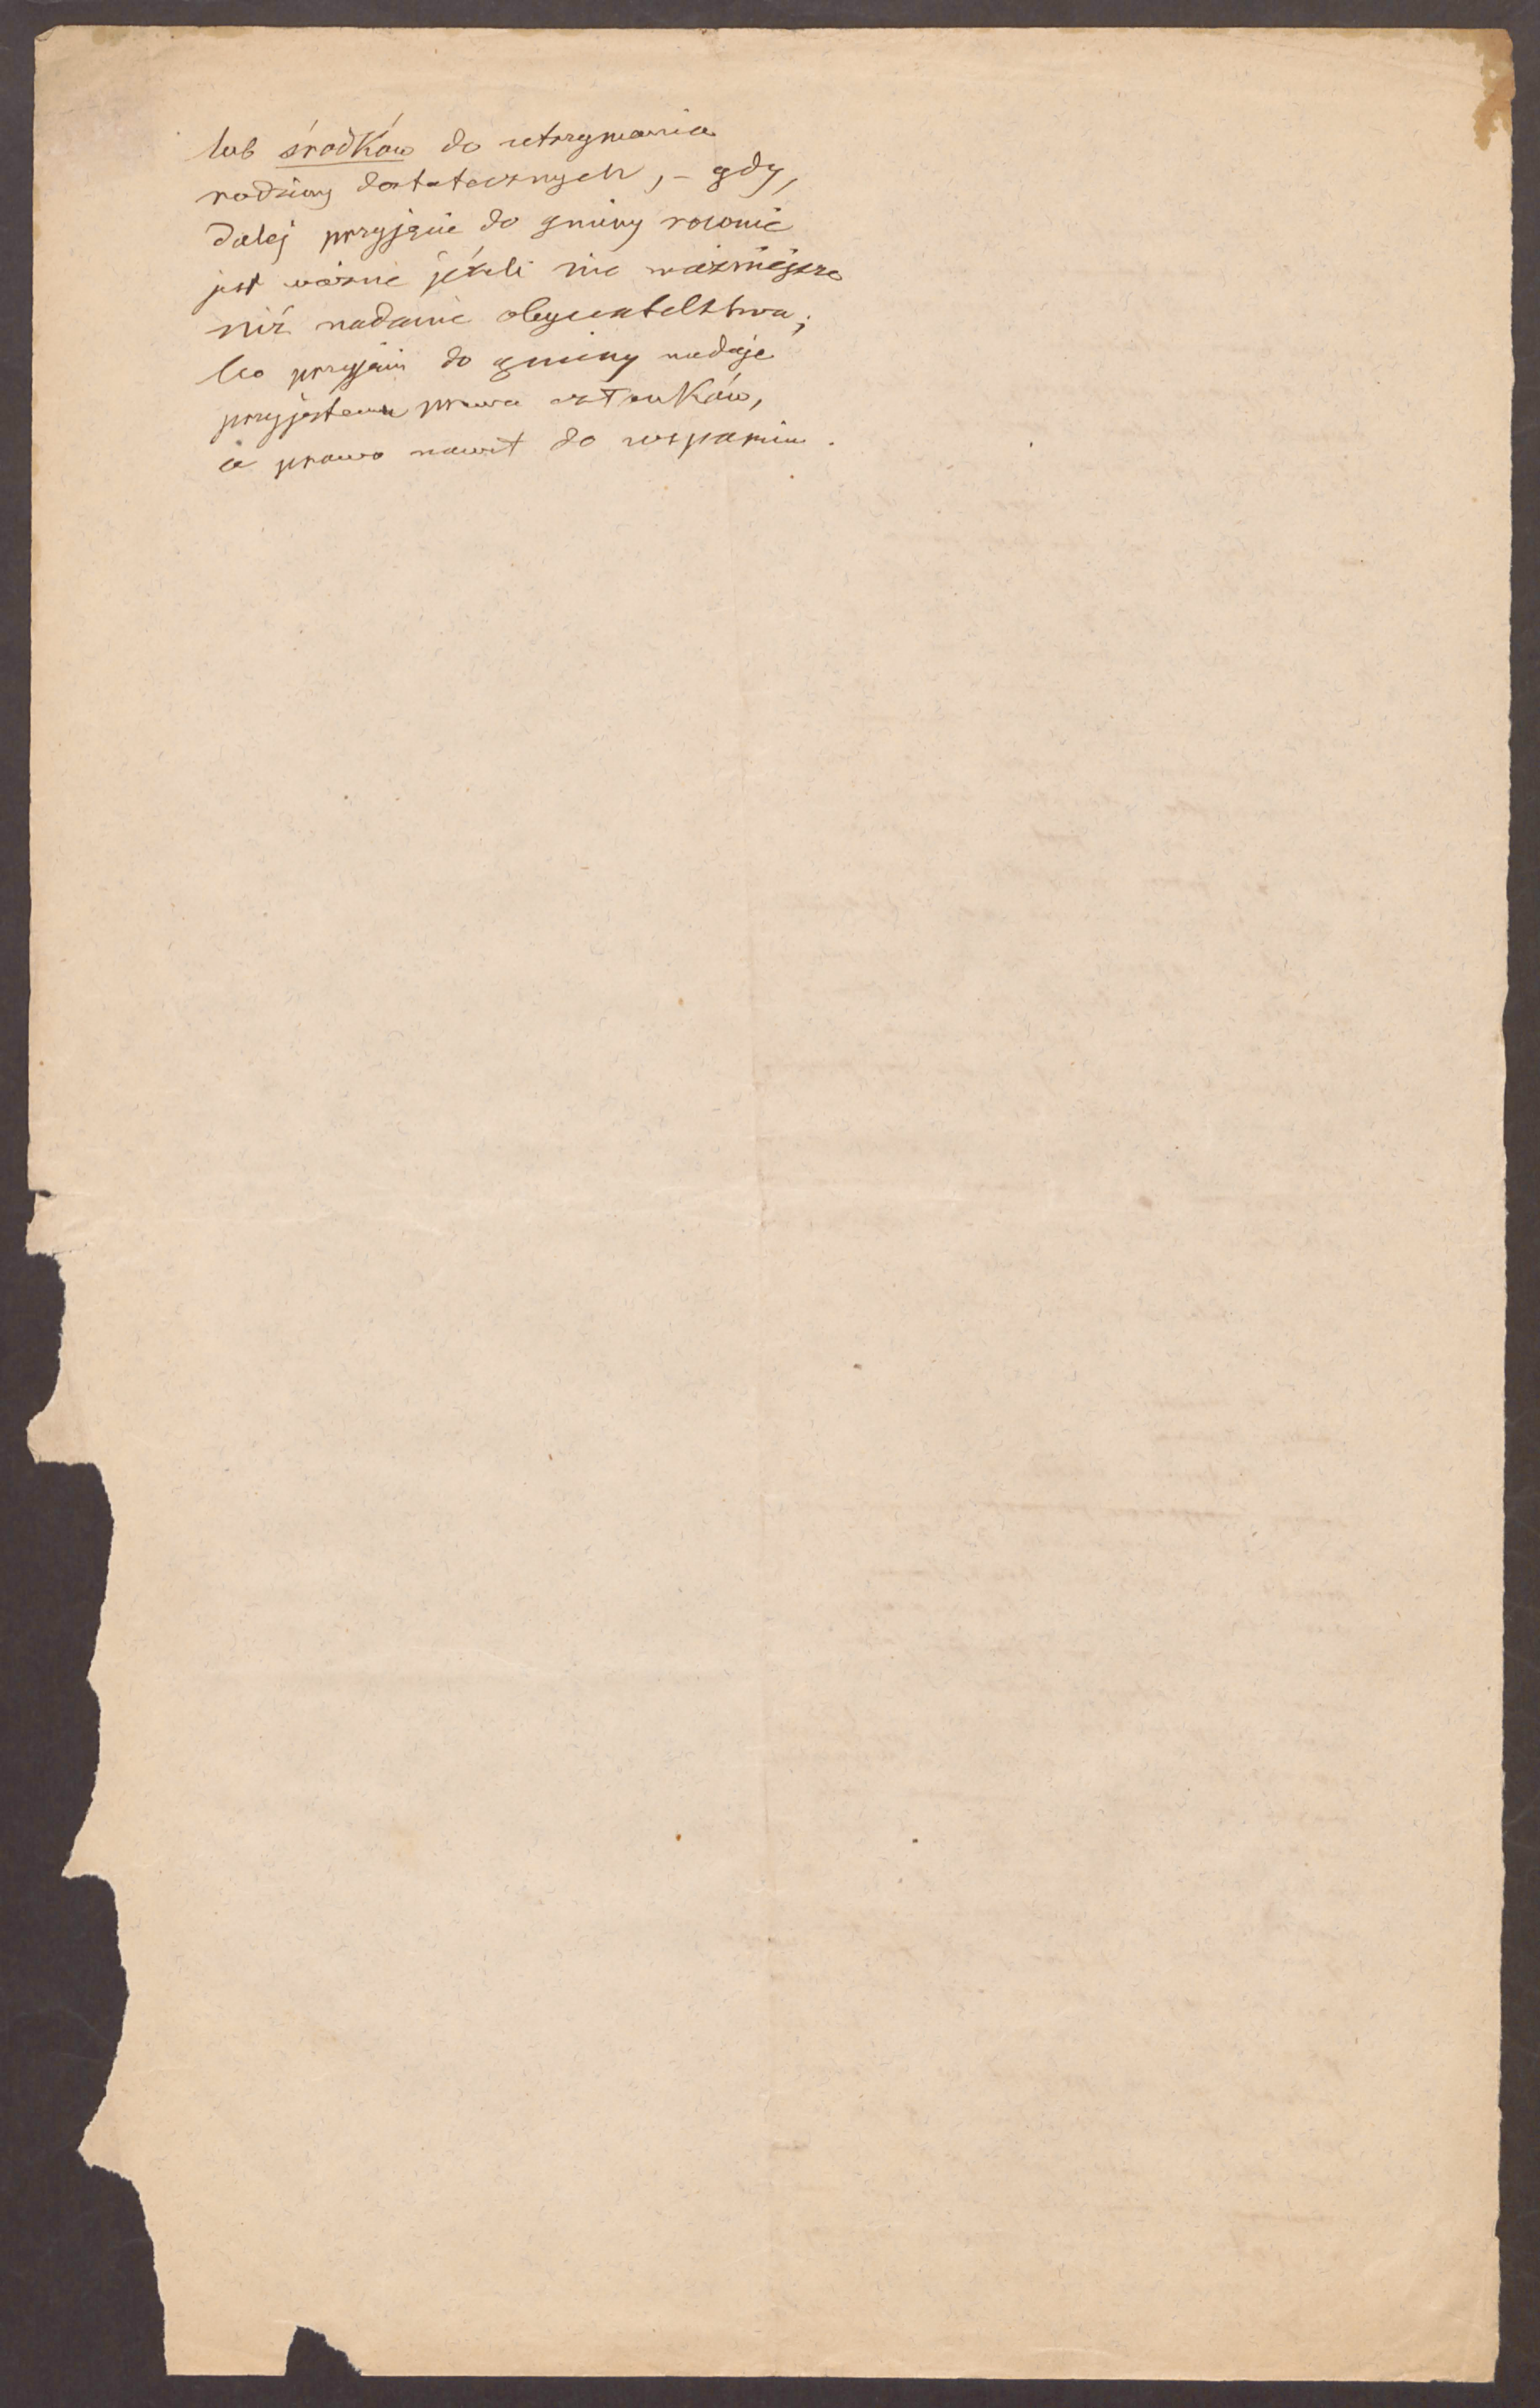 lub środków do utrzymania
rodziny dostatecznych, – gdy,
dalej przyjęcie do gminy rownie
jest ważne jeżeli nie ważniejsze
niż nadanie obywatelstwa;
bo przyjęcie do gminy nadaje
przyjętemu prawa członków,
a prawo nawet do wsparcia.